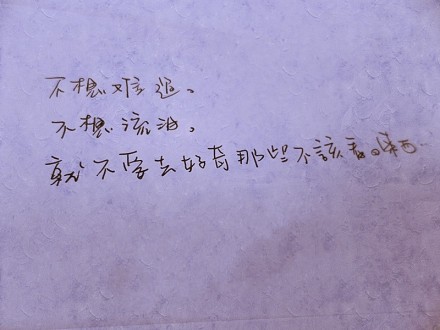 不想难過。
不想流泪。
就不要去好奇那些不該看的東西…